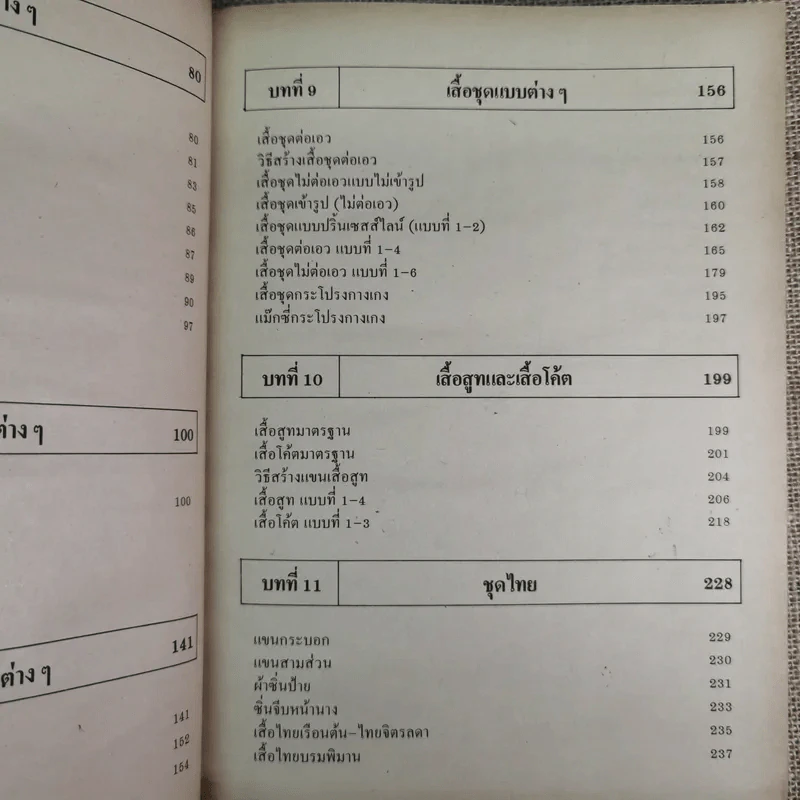 ๆ
80
80
81
83
85
86
87
89
90
97
ต่าง ๆ 100
100
ต่าง ๆ 141
141
152
154
บทที่ 9 เสื้อชุดแบบต่าง ๆ 156
เสื้อชุดต่อเอว 156
วิธีสร้างเสื้อชุดต่อเอว 157
เสื้อชุดไม่ต่อเอวแบบไม่เข้ารูป 158
เสื้อชุดเข้ารูป (ไม่ต่อเอว) 160
เสื้อชุดแบบปริ้นเซสส์ไลน์ (แบบที่ 1-2) 162
เสื้อชุดต่อเอว แบบที่ 1-4 165
เสื้อชุดไม่ต่อเอว แบบที่ 1-6 179
เสื้อชุดกระโปรงกางเกง 195
แม๊กซี่กระโปรงกางเกง 197
บทที่ 10 เสื้อสูทและเสื้อโค้ต 199
เสื้อสูทมาตรฐาน 199
เสื้อโค้ตมาตรฐาน 201
วิธีสร้างแขนเสื้อสูท 204
เสื้อสูท แบบที่ 1-4 206
เสื้อโค้ต แบบที่ 1-3 218
บทที่ 11 ชุดไทย 228
แขนกระบอก 229
แขนสามส่วน 230
ผ้าซิ่นป้าย 231
ซิ่นจีบหน้านาง 233
เสื้อไทยเรือนต้น-ไทยจิตรลดา 235
เสื้อไทยบรมพิมาน 237